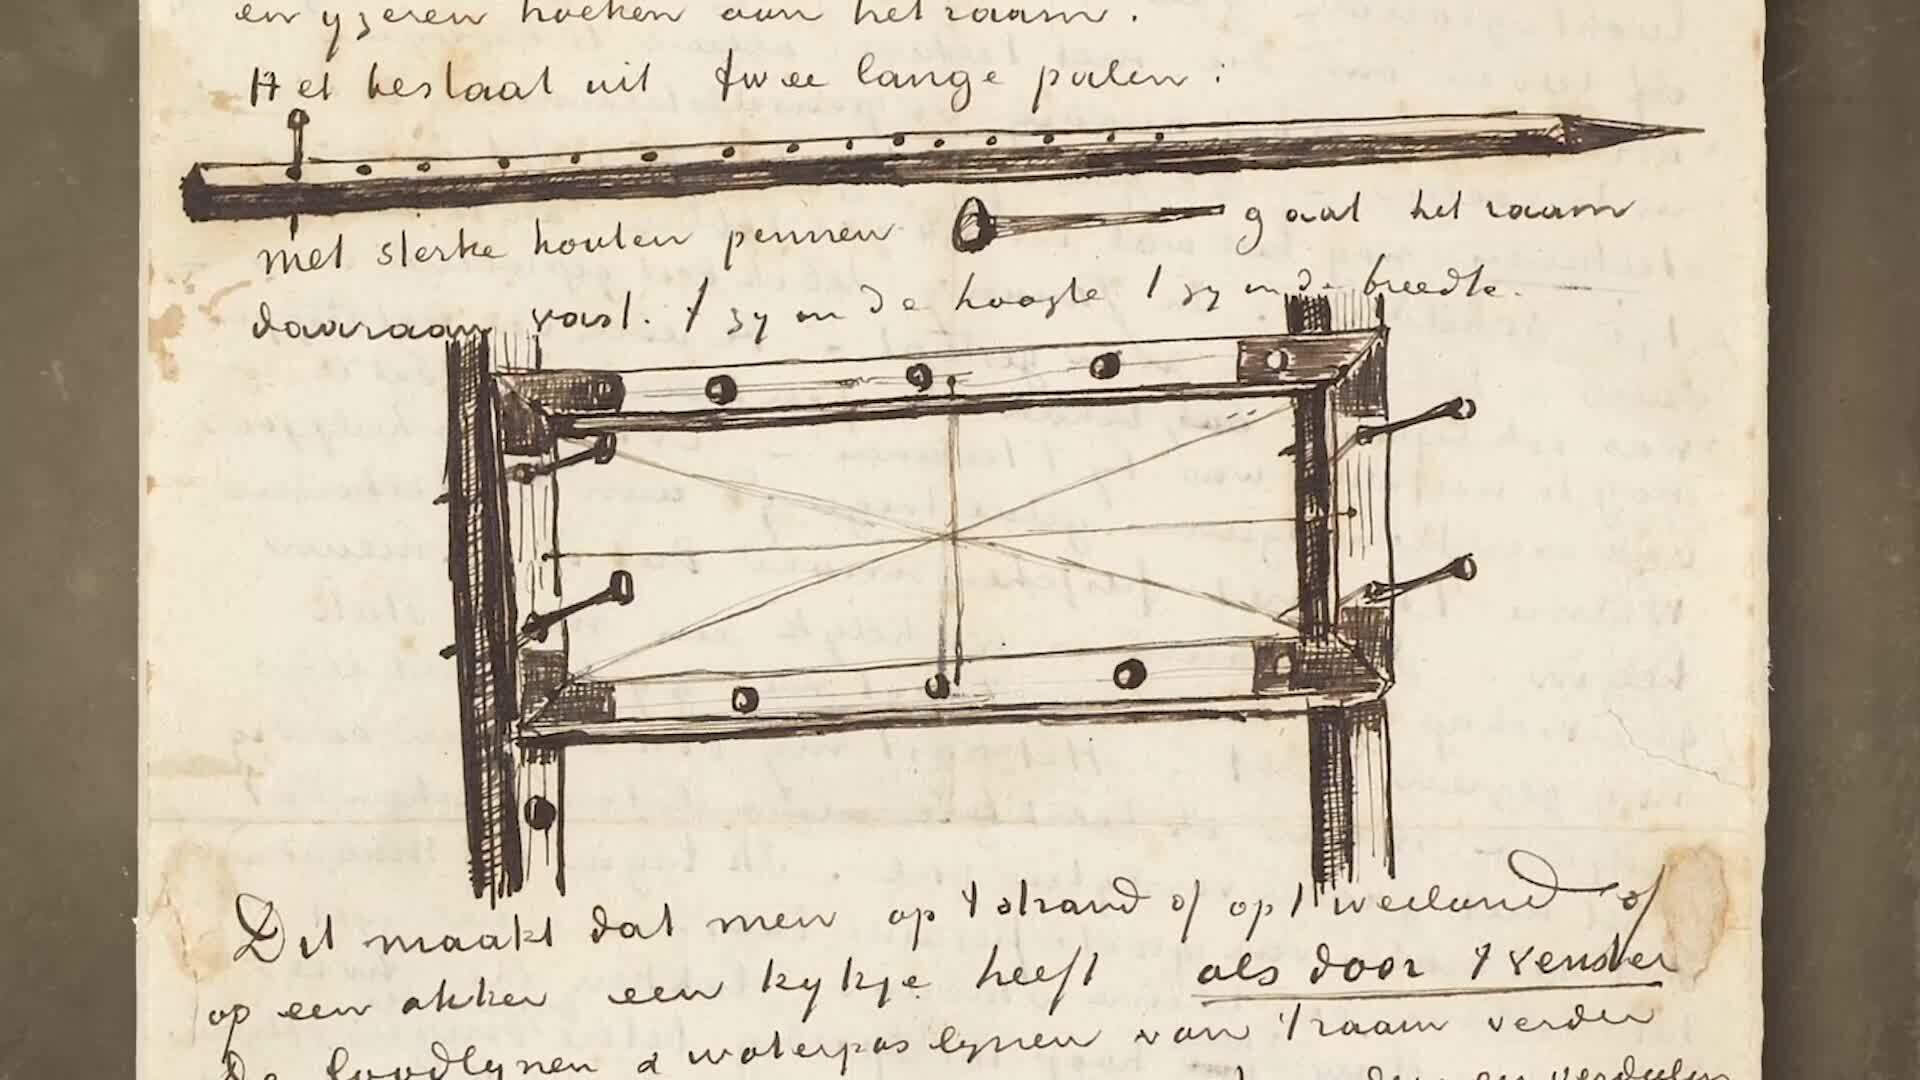 en yzeren hoeken aan het raam.
Het bestaat uit twee lange palen:
met sterke houten pennen gaat het raam
daaraan vast. 't zy in de hoogte 't zy in de breedte.
Dit maakt dat men op 't strand of op 't weiland of
op een akker een kykje heeft als door 't venster
De loodlynen & waterpas lynen van 't raam verder